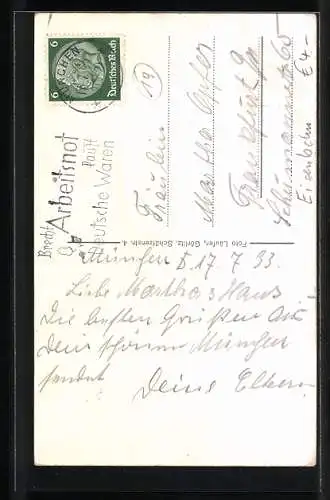 6 Deutsches Reich 6
MÜNCHEN
Brecht
Arbeitsnot
Kauft
Deutsche Waren
19
Fräulein
Martha
Frankfurt
Eisenbahn
€ 4.-
Foto Laufer, Görlitz, Schützenstr. 4.
München d 17 7 33.
Liebe Martha & Hans
Die besten Grüßen aus
dem schönen München
sendet
Deine Eltern